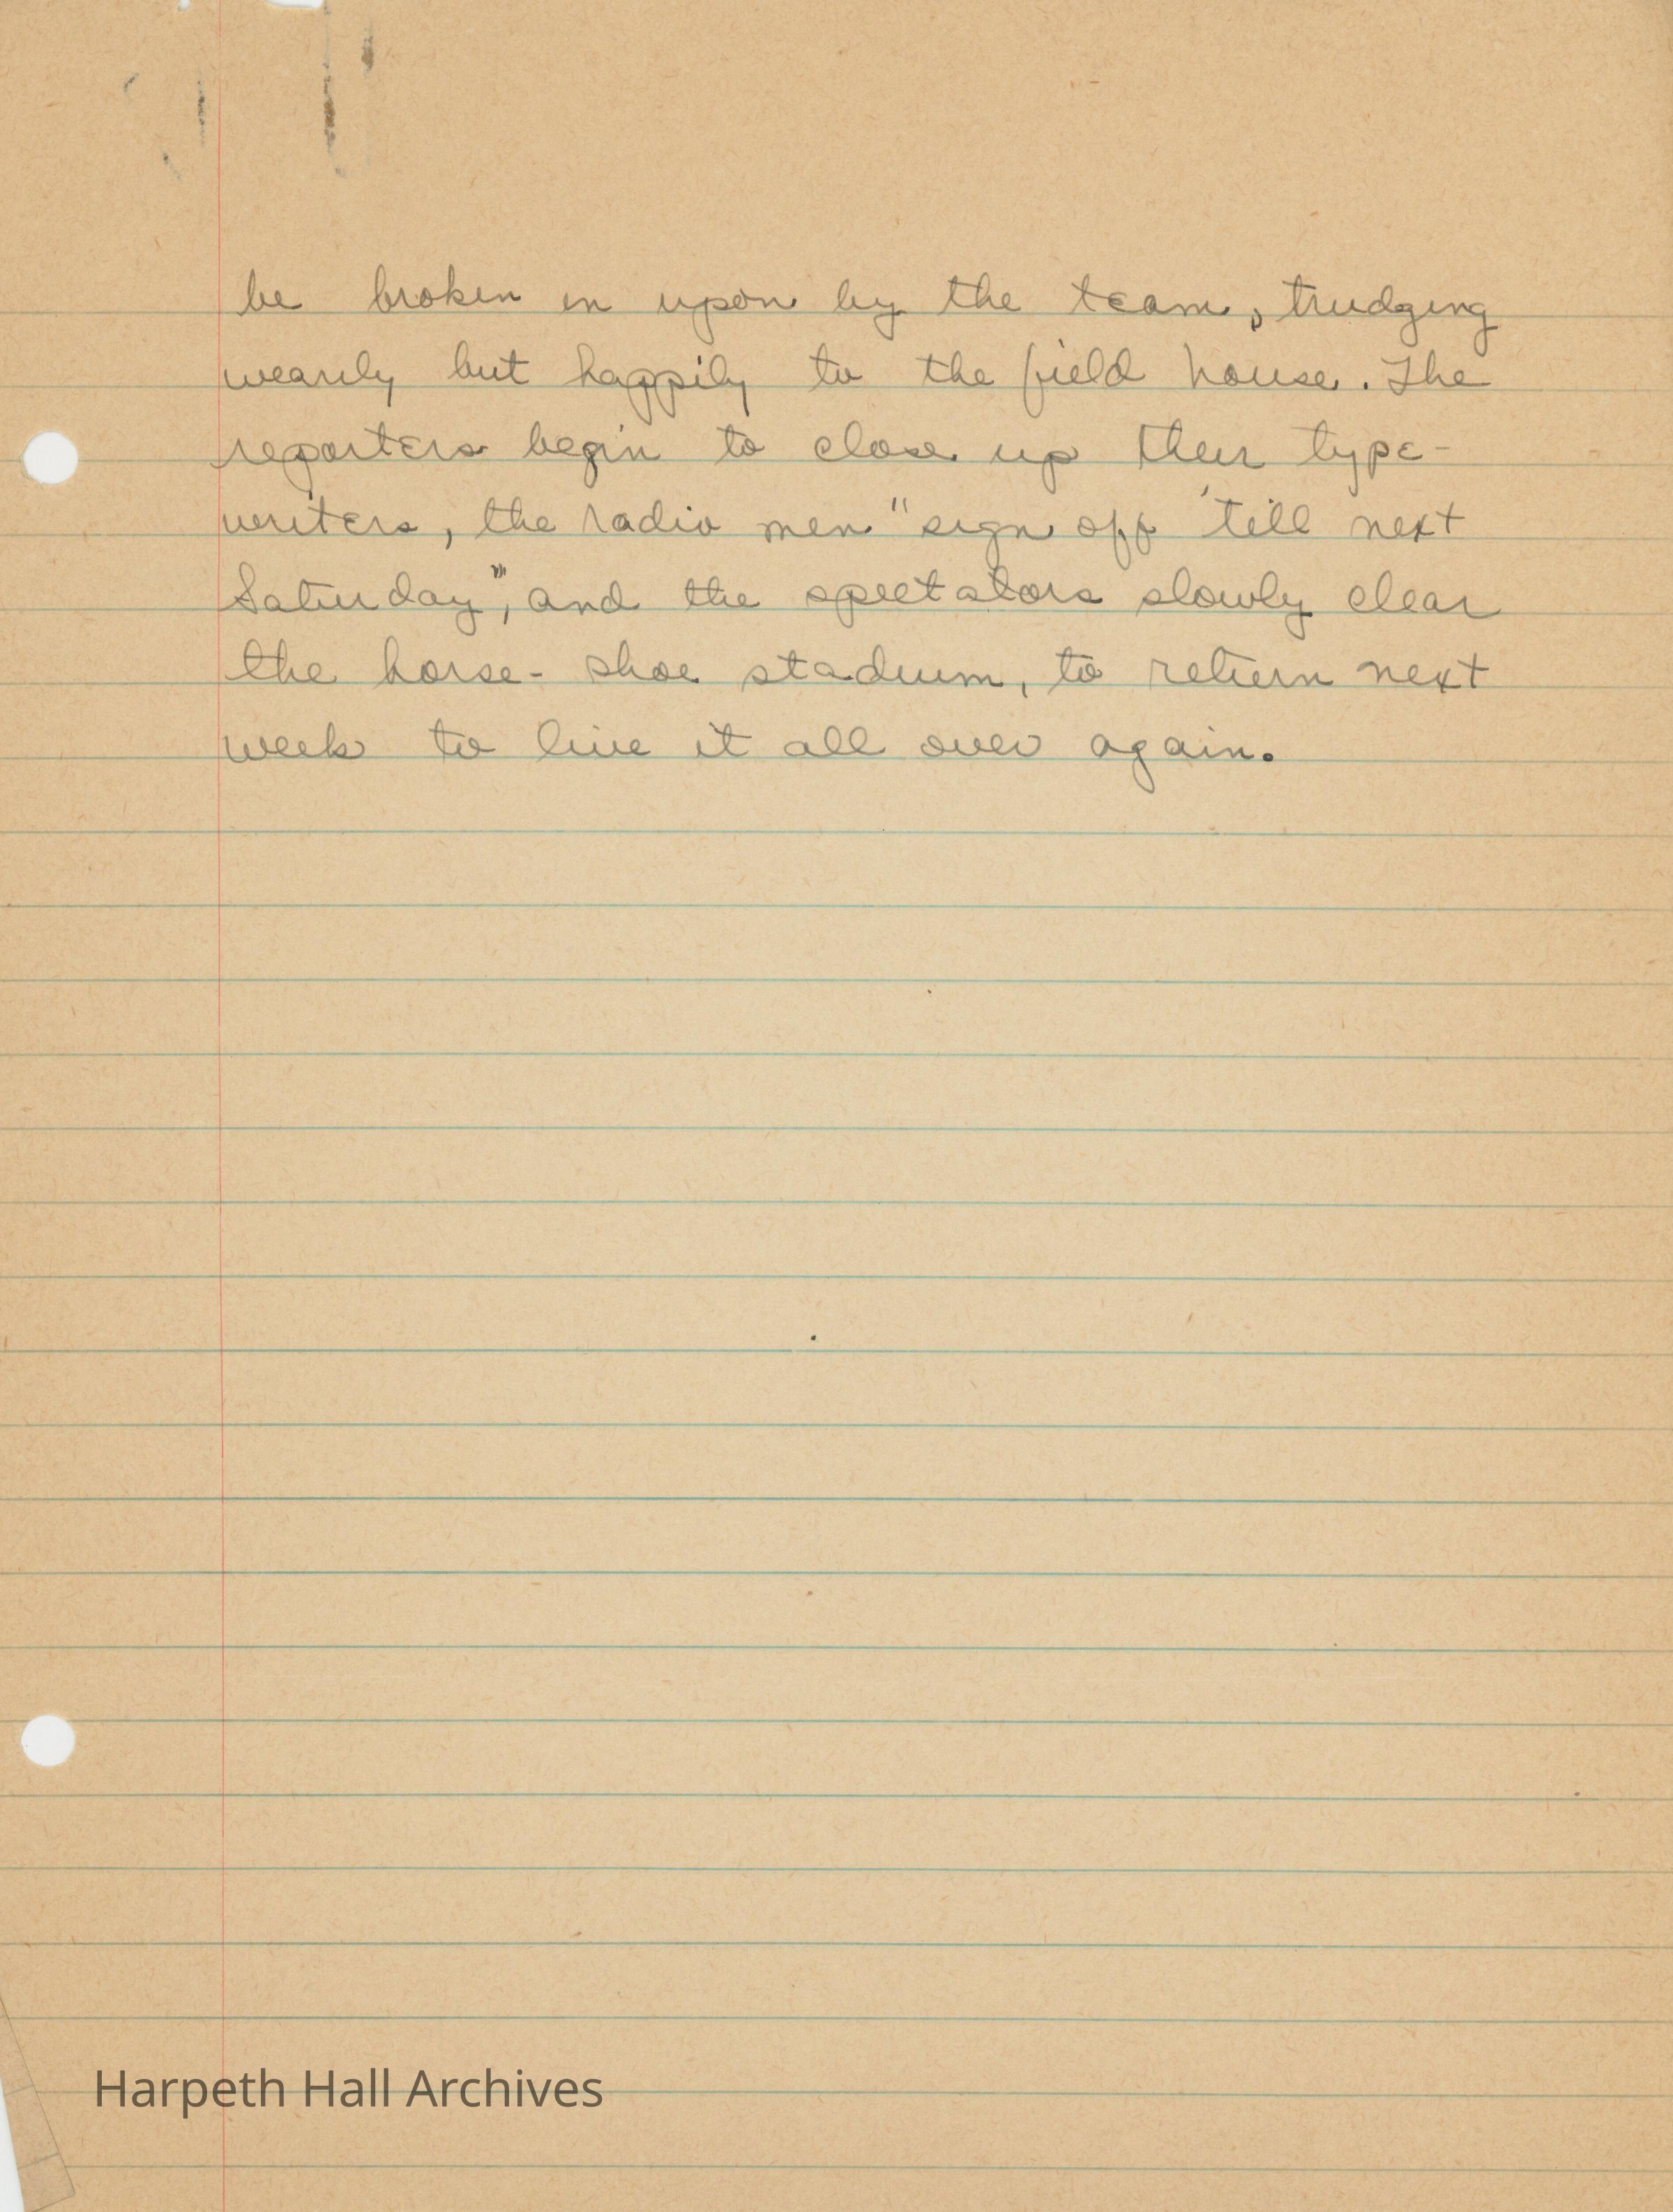 be broken in upon by the team, trudging
wearily but happily to the field house. The
reporters begin to close up their type-
writers, the radio men "sign off 'till next
Saturday'", and the spectators slowly clear
the horse-shoe stadium, to return next
week to live it all over again.
Harpeth Hall Archives